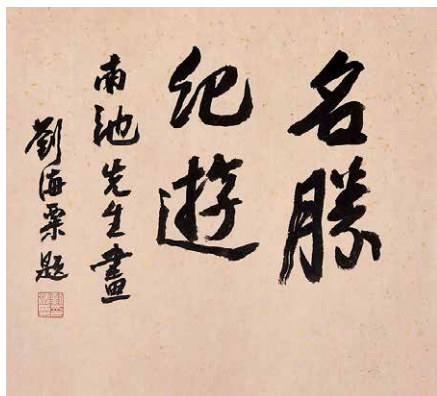 名勝
紀遊
南池先生畫
劉海粟題